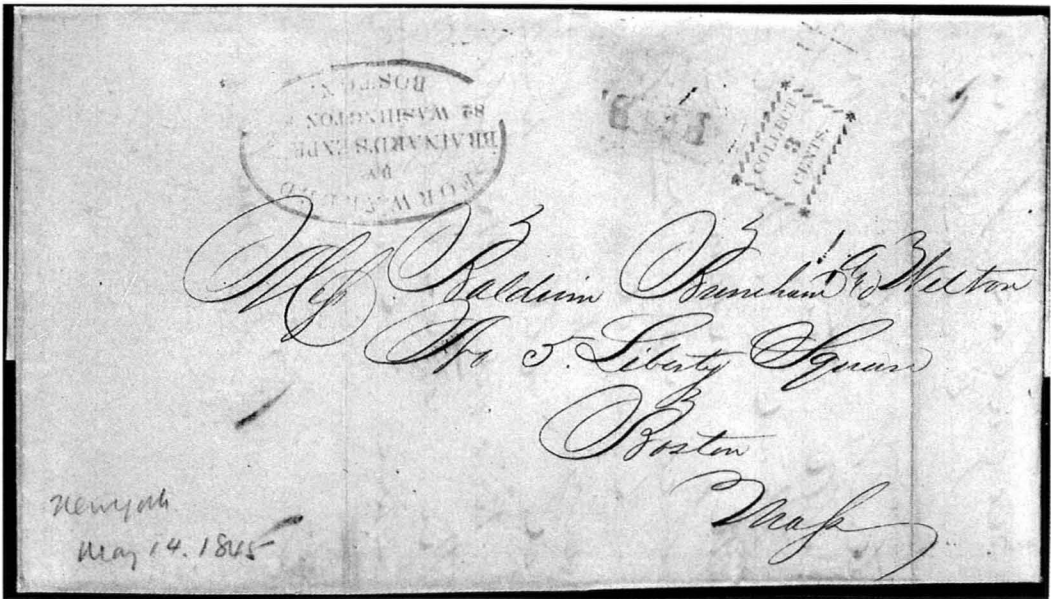 FORWARDED
BY
BRAINARD'S EXPR
82 WASHINGTON
BOSTON
COLLECT
3
CENTS.
Mess Baldwin Burnham & Welton
No 5. Liberty Square
Boston
Mass
New York
May 14. 1845